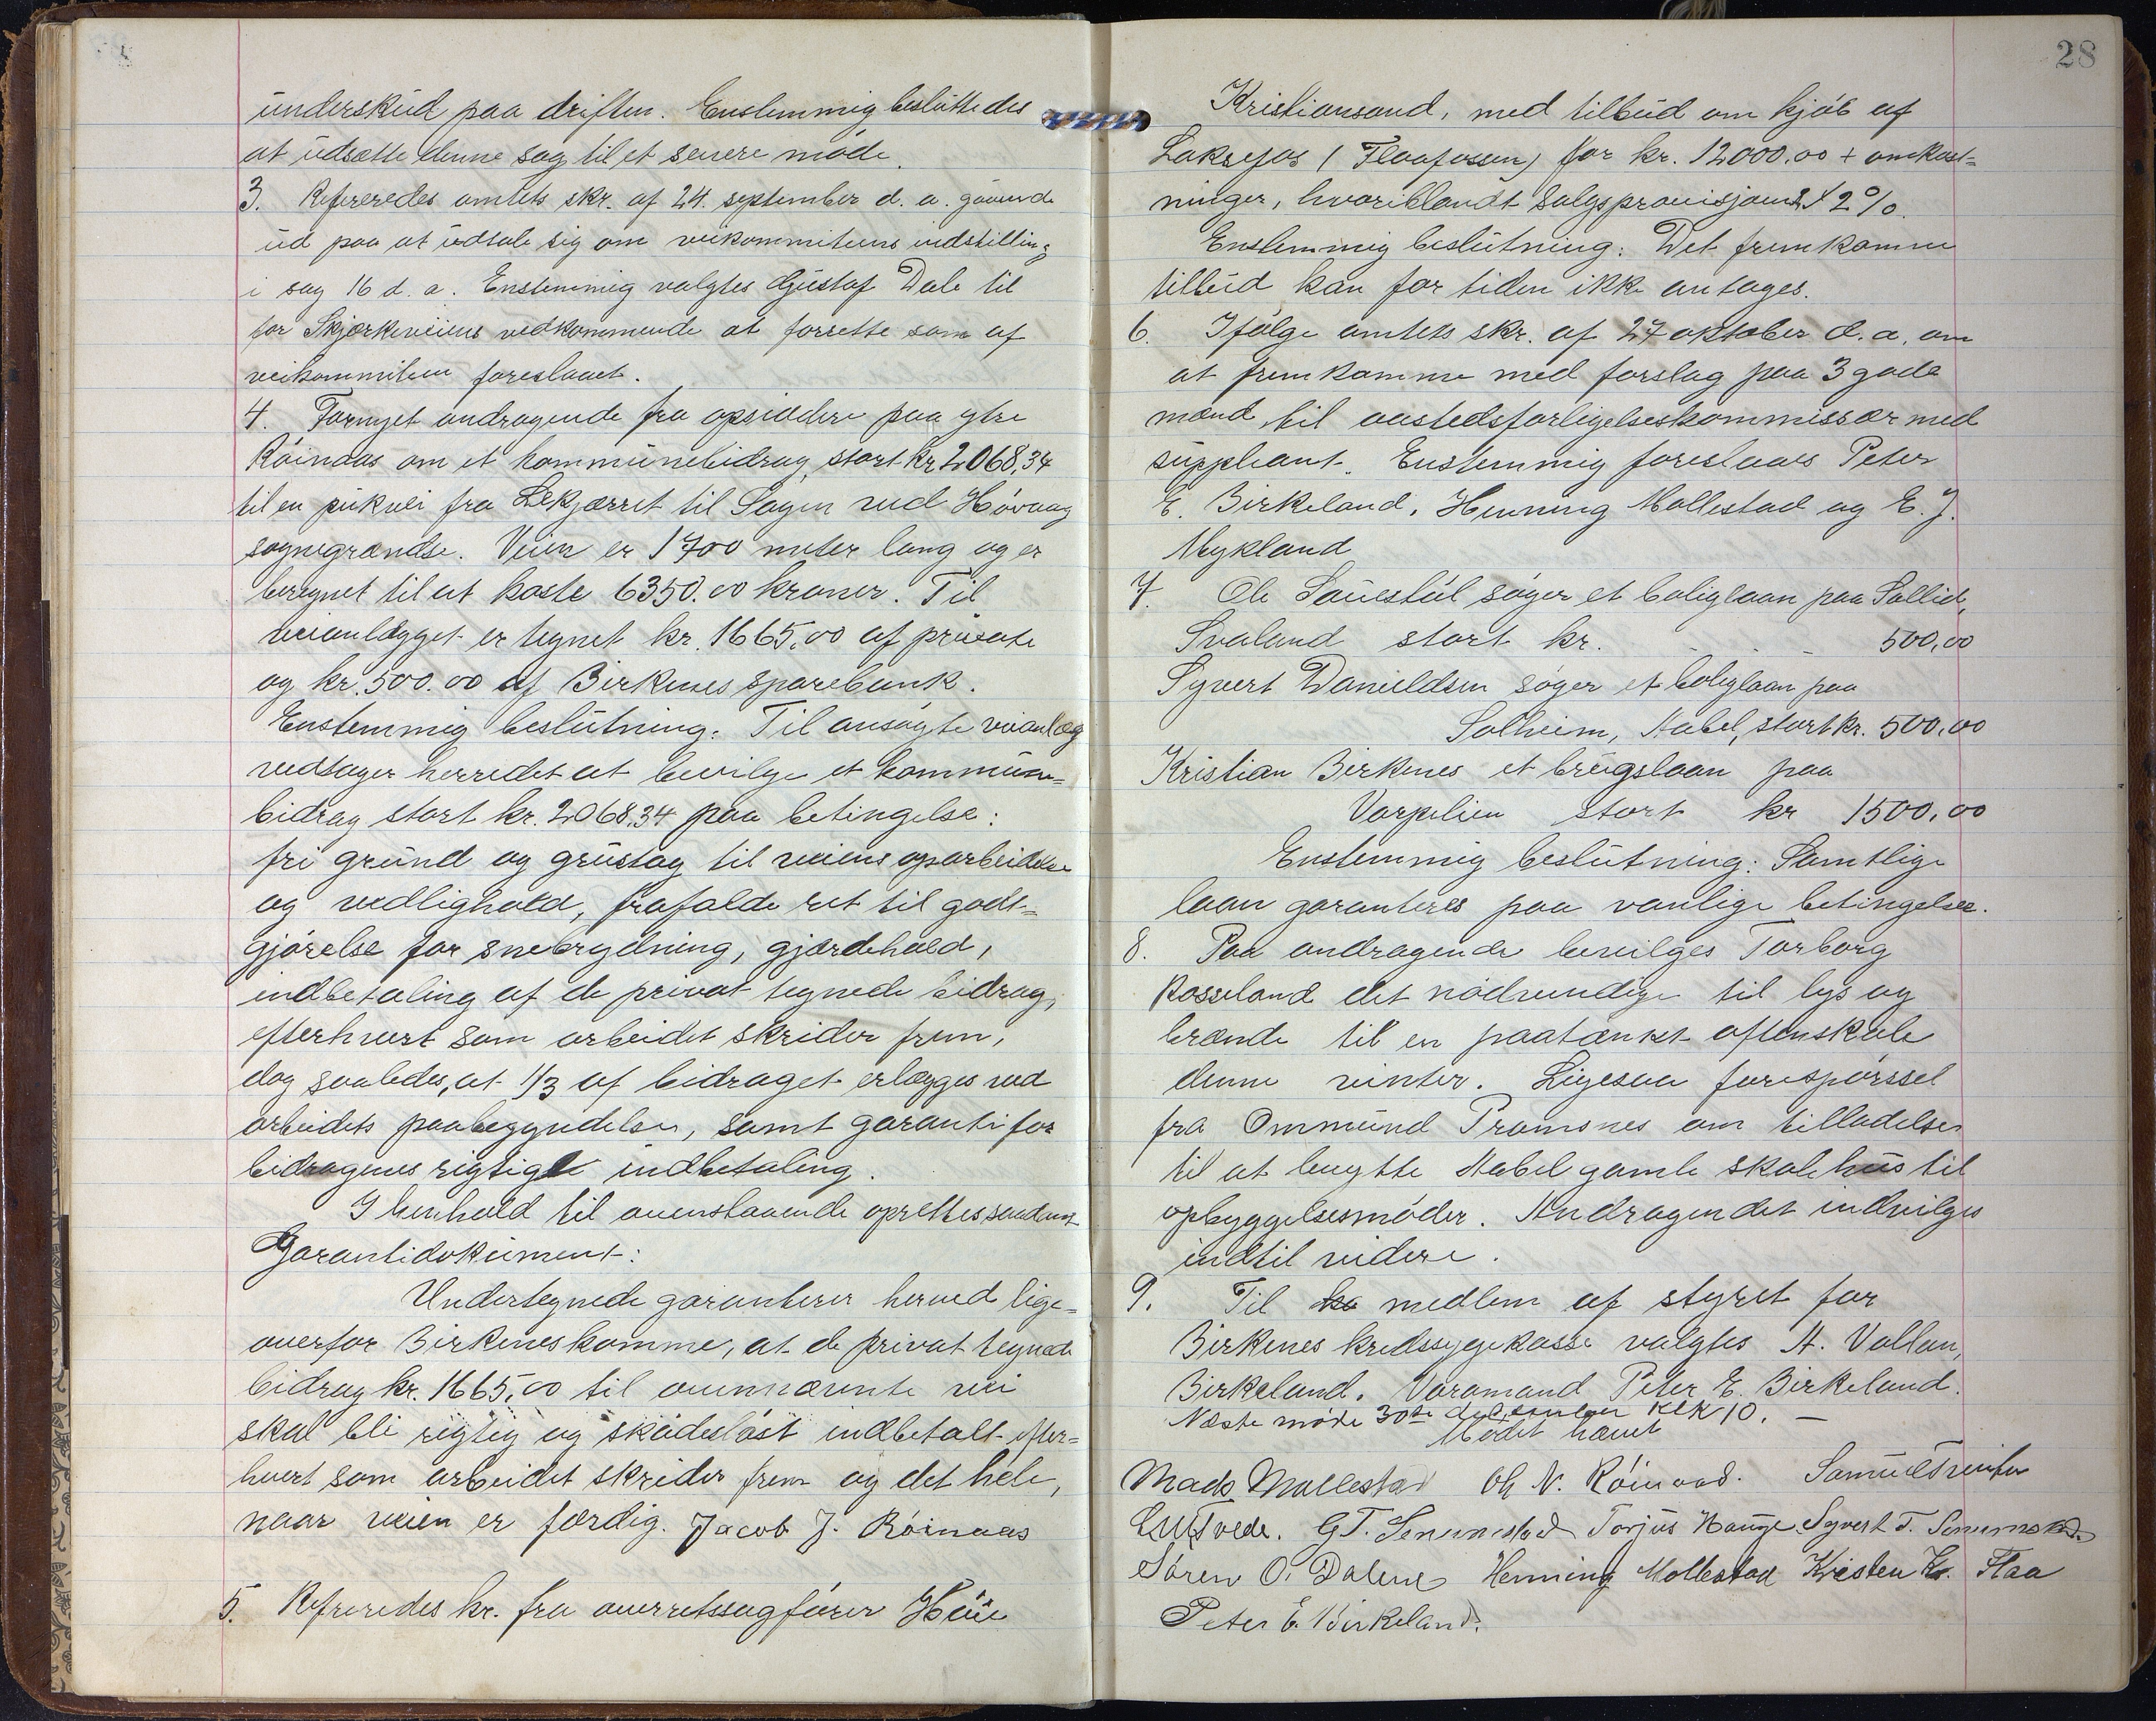 underskud paa driften. Enstemmig besluttedes
at udsætte denne sag til et senere møde.
3. Refereredes amtets skr. af 24. september d. a. gaaende
ud paa at udtale sig om veikommiteens indstilling
i sag 16 d. a. Enstemmig valgtes Gustaf Dale til
for Skjærkeveiens vedkommende at forrette som af
veikommiteen foreslaaet.
4. Fornyet andragende fra opsiddere paa ytre
Røinaas om et kommunebidrag stort kr 2068,34
til en pukvei fra Lekjærret til Lagen ved Høvaag
sognegrændse. Veien er 1700 meter lang og er
beregnet til at koste 6350.00 kroner. Til
veianlægget er tegnet kr. 1665,00 af private
og kr. 500.00 af Birkenes sparebank.
Enstemmig beslutning: Til ansøgte veianlæg
vedtager herredet at bevilge et kommune=
bidrag stort kr. 2068,34 paa betingelse:
fri grund og grustag til veiens oparbeidelse
og vedlighold, frafalde ret til godt=
gjørelse for snebrydning, gjærdehold,
indbetaling af de privat tegnede bidrag,
efterhvert som arbeidet skrider frem,
dog saaledes, at 1/3 af bidraget erlægges ved
arbeidets paabegyndelse, samt garanti for
bidragenes rigtige indbetaling.
I henhold til ovenstaaende oprettes saadant
Garantidokument:
Undertegnede garanterer herved lige=
overfor Birkenes komme, at de privat tegnede
bidrag kr. 1665,00 til ovennævnte vei
skal bli rigtig og skadesløst indbetalt efter=
hvert som arbeidet skrider frem og det hele,
naar veien er færdig. Jacob J. Røinaas
5. Refereredes kr. fra overretssagfører Haue
28
Kristiansand, med tilbud om kjøb af
Laksefos (Flaafossen) for kr. 12000.00 + omkost=
ninger, hvoriblandt salgsprovisjon 2%.
Enstemmig beslutning: Det fremkomne
tilbud kan for tiden ikke antages.
6. Ifølge amtets skr. af 27 oktober d. a. om
at fremkomme med forslag paa 3 gode
mænd til aastedsforligelseskommissær med
suppleant. Enstemmig foreslaaes Peter
E. Birkeland, Henning Mollestad og E. J.
Mykland
7. Ole Sauestøl søger et boliglaan paa Sollid,
Svaland stort kr. - - - 500,00
Syvert Danieldsen søger et boliglaan paa
Solheim, Nabel, stort kr. 500,00
Kristian Birkenes et brugslaan paa
Vorpelien stort kr 1500,00
Enstemmig beslutning: Samtlige
laan garanteres paa vanlige betingelser.
8. Paa andragende bevilges Torborg
Rosseland det nødvendige til lys og
brænde til en paatænkt aftenskole
denne vinter. Ligesaa forespørssel
fra Ommund Tramsnes om tilladelse
til at benytte Nabel gamle skolehus til
opbyggelsesmøder. Andragendet indvilges
indtil videre.
9. Til ko medlem af styret for
Birkenes kredssygekasse valgtes A. Vallan,
Birkeland. Varamand Peter E. Birkeland.
Næste møde 30te december klk 10. —
Mødet hævet
Mads Mollestad Ol N. Røinaas. Samuel
Tveide. G T. Senumstad Torjus Hauge. Syvert T. Senumstad
Søren O. Dalene Henning Mollestad Kristen K. Flaa
Peter E. Birkeland.